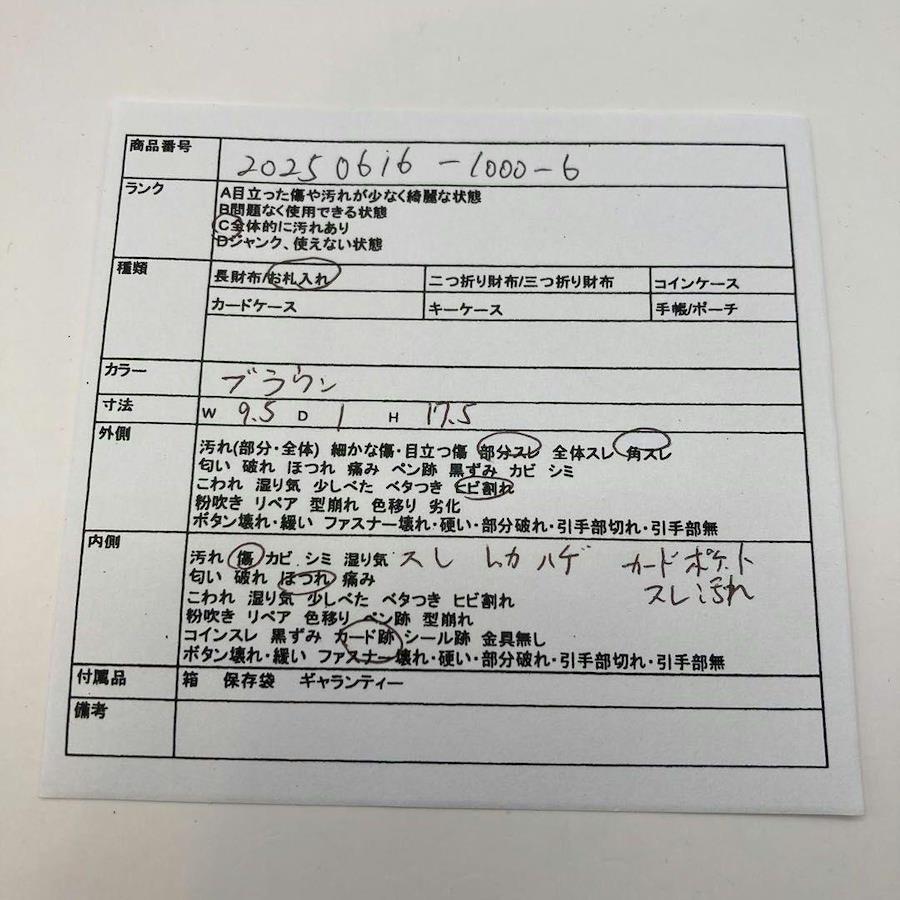 商品番号 20250616-1000-6
ランク A目立った傷や汚れが少なく綺麗な状態
B問題なく使用できる状態
C全体的に汚れあり
Dジャンク、使えない状態
種類 長財布/お札入れ 二つ折り財布/三つ折り財布 コインケース
カードケース キーケース 手帳/ポーチ
カラー ブラウン
寸法 W 9.5 D 1 H 17.5
外側
汚れ(部分・全体) 細かな傷・目立つ傷 部分スレ 全体スレ 角スレ
匂い 破れ ほつれ 痛み ペン跡 黒ずみ カビ シミ
こわれ 湿り気 少しべた ベタつき ヒビ割れ
粉吹き リペア 型崩れ 色移り 劣化
ボタン壊れ・緩い ファスナー壊れ・硬い・部分破れ・引手部切れ・引手部無
内側
汚れ 傷 カビ シミ 湿り気 スレ ハゲ カードポケット
スレ汚れ
匂い 破れ ほつれ 痛み
こわれ 湿り気 少しべた ベタつき ヒビ割れ
粉吹き リペア 色移り ペン跡 型崩れ
コインスレ 黒ずみ カード跡 シール跡 金具無し
ボタン壊れ・緩い ファスナー壊れ・硬い・部分破れ・引手部切れ・引手部無
付属品 箱 保存袋 ギャランティー
備考